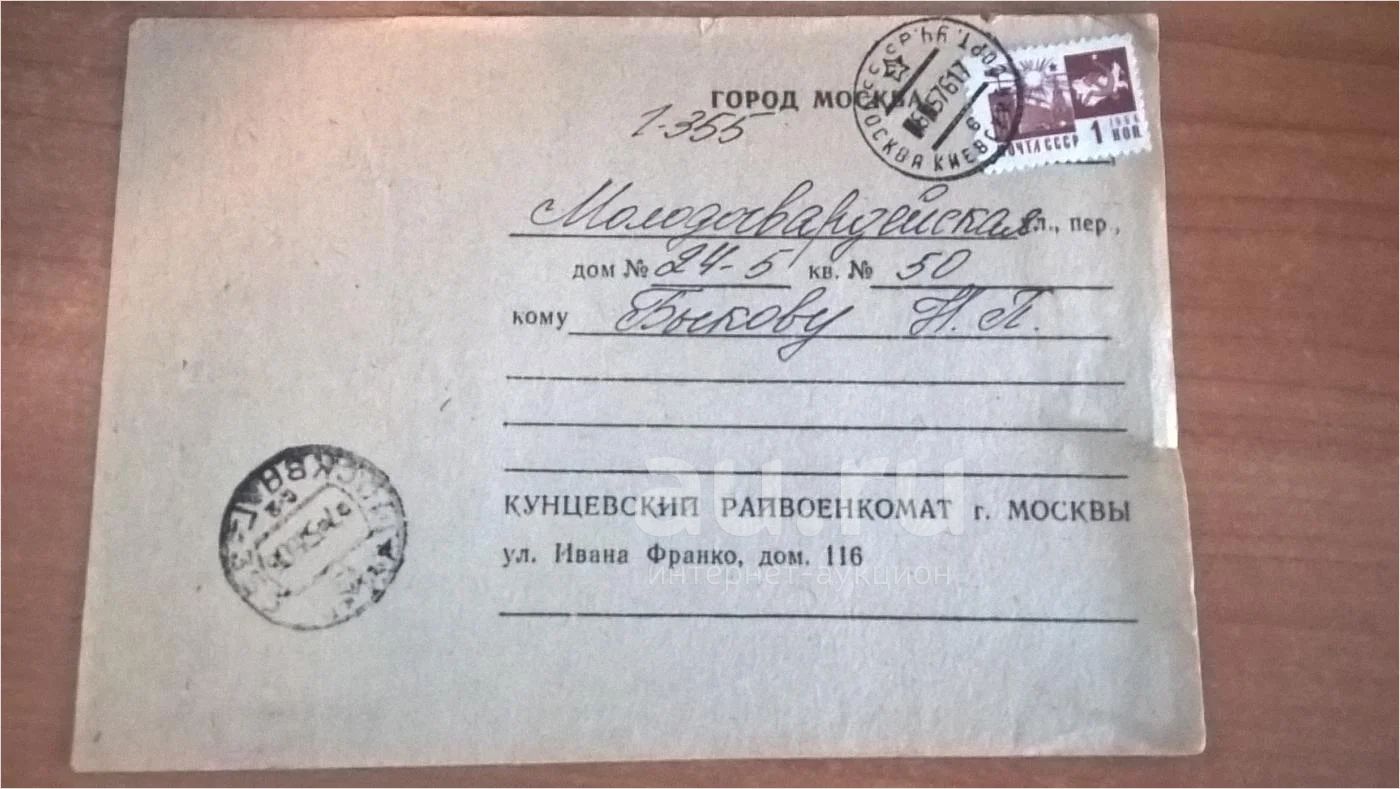 ГОРОД МОСКВА
1-355
МОСКВА КИЕВСК
ПОЧТА СССР 1966
1 КОП
Молодогвардейская ул., пер.,
дом № 24-5 кв. № 50
кому Быкову Н. П.
au.ru
КУНЦЕВСКИЙ РАЙВОЕНКОМАТ г. МОСКВЫ
ул. Ивана Франко, дом. 116
интернет-аукцион
МОСКВА